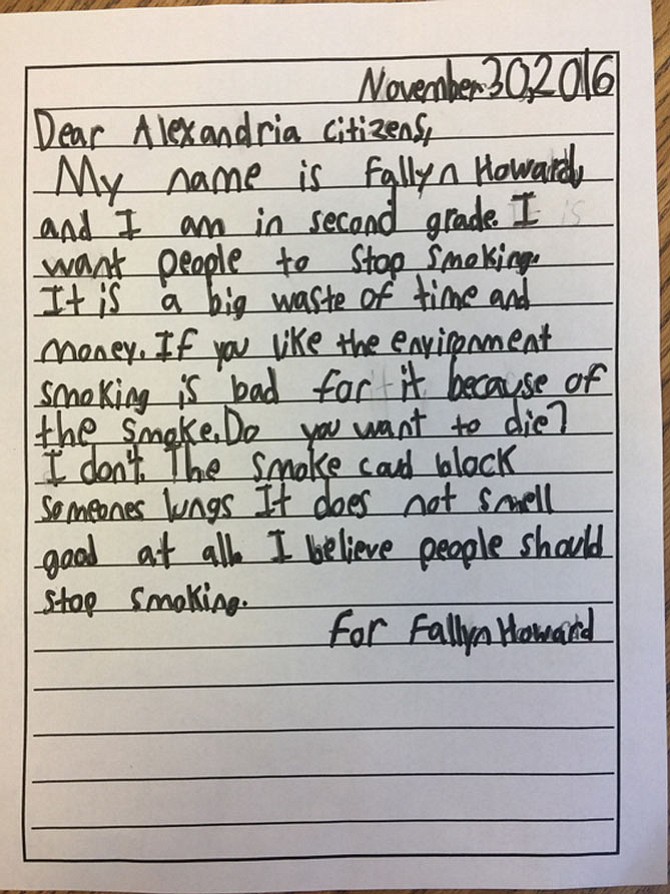 November 30, 2016
Dear Alexandria citizens,
My name is Fallyn Howard,
and I am in second grade. I
want people to stop smoking.
It is a big waste of time and
money. If you like the envirnment
smoking is bad for it because of
the smoke. Do you want to die?
I don't. The smoke coud block
someones lungs It does not smell
good at all. I believe people should
stop smoking.
for Fallyn Howard